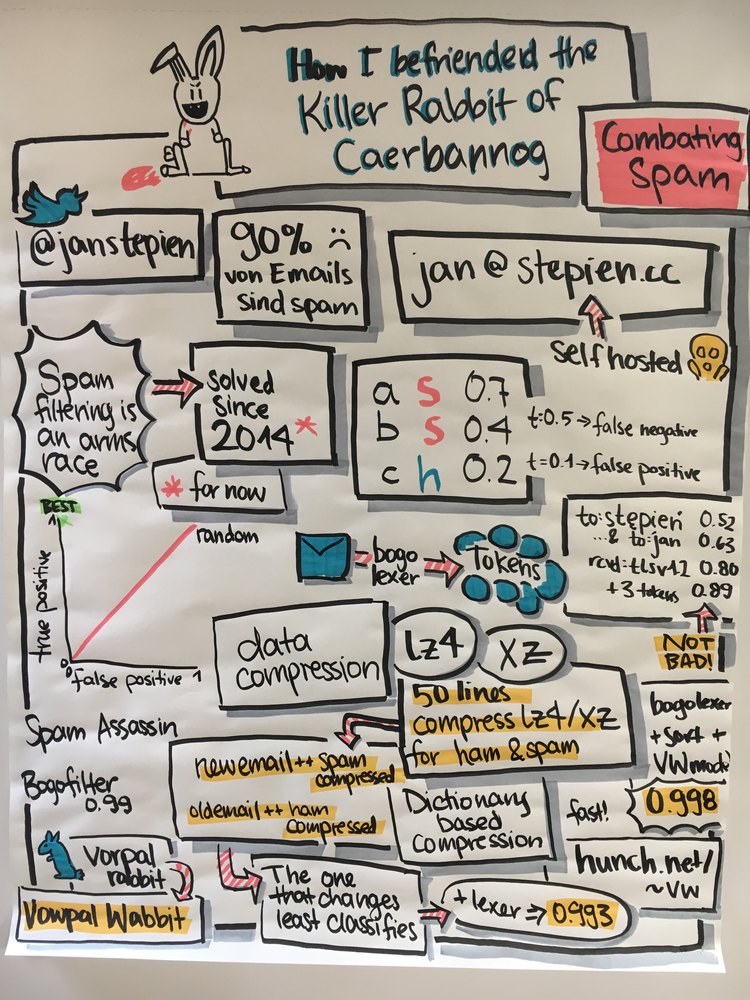 How I befriended the
Killer Rabbit of
Caerbannog
Combating
Spam
@janstepien
90%
von Emails
sind spam
jan@stepien.cc
self hosted
Spam
filtering is
an arms
race
solved
since
2014*
* for now
a s 0.7
b s 0.4
c h 0.2
t:0.5→false negative
t=0.1→false positive
BEST
1
true positive
random
0
0
false positive 1
bogo
lexer
Tokens
to:stępień 0.52
...& to:jan 0.63
rcvd:tlsv12 0.80
+3 tokens 0.89
NOT
BAD!
data
compression
lz4
XZ
50 lines
compress lz4/XZ
for ham & spam
Spam Assassin
Bogofilter
0.99
new email ++ spam
compressed
old email ++ ham
compressed
Dictionary
based
compression
bogolexer
+ sort +
VW model
fast!
0.998
hunch.net/
~vw
vorpal
rabbit
Vowpal Wabbit
The one
that changes
least classifies
+ lexer ⇒ 0.993